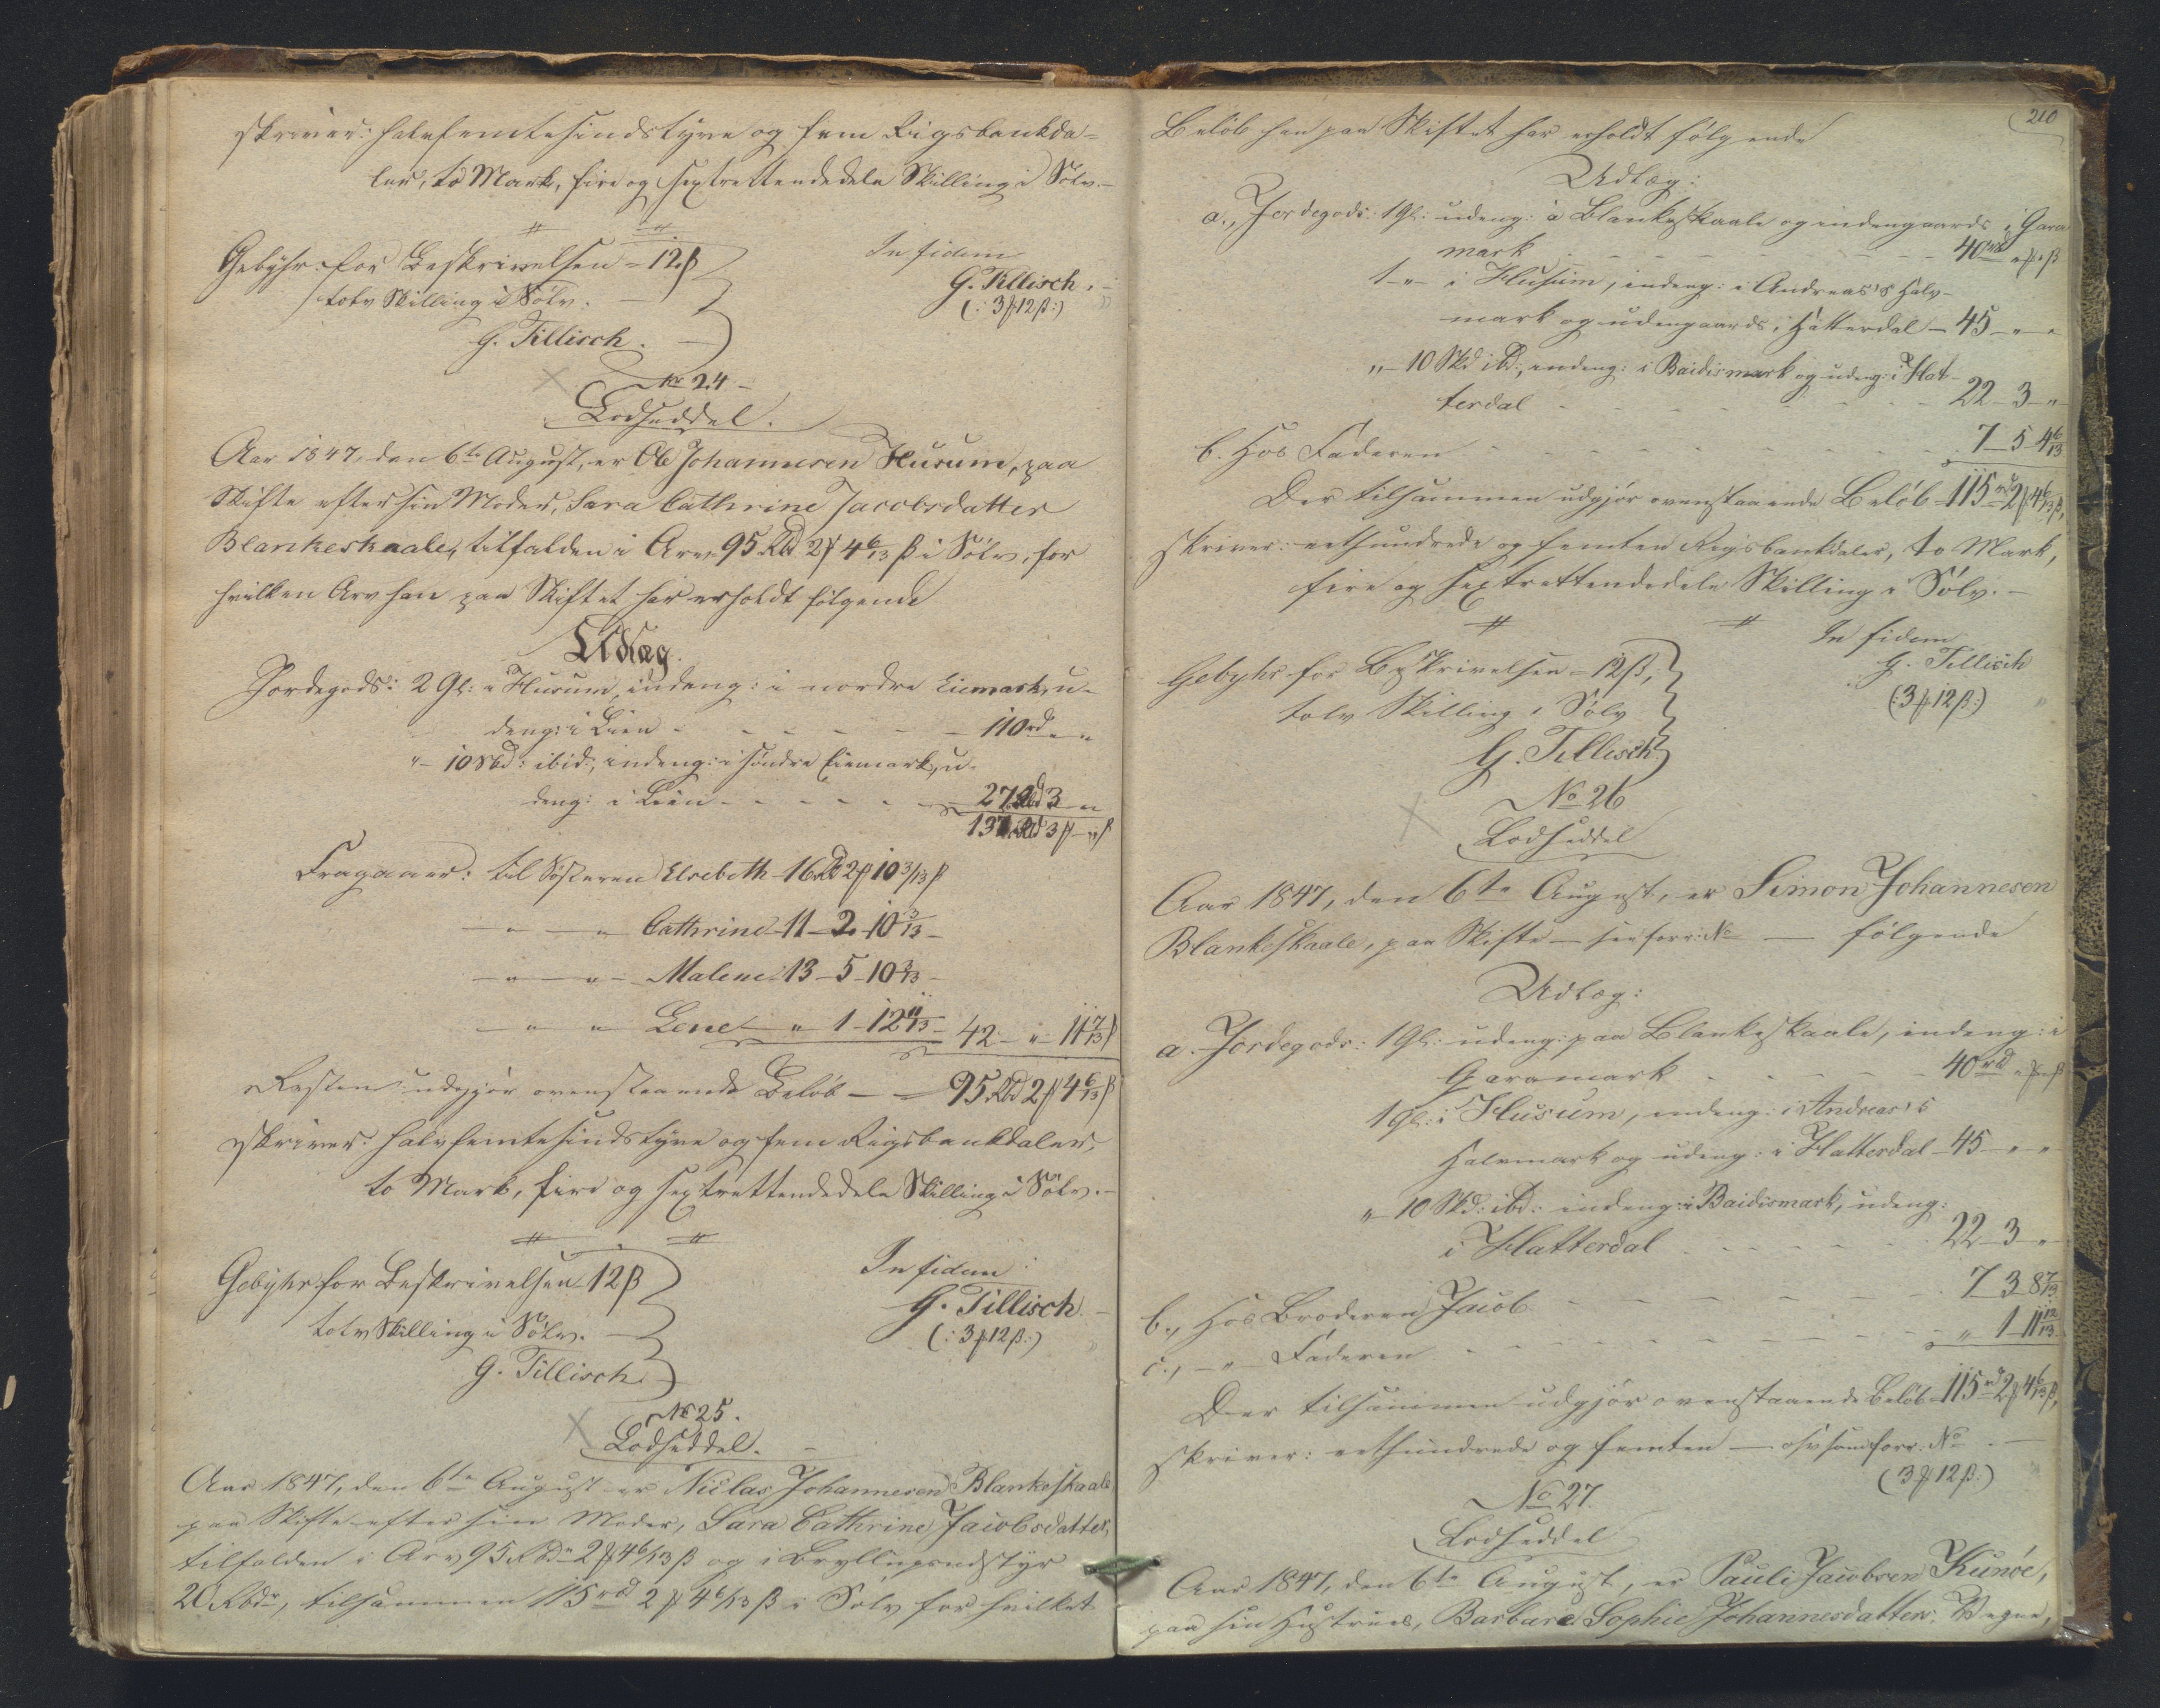 skriver: halvfemtesindstyve og fem Rigsbankda-
ler, to Mark, fire og sextrettendedele Skilling i Sølv.-
Gebyhr for Beskrivelsen - 12 ß
tolv Skilling i Sølv.
G. Tillisch.
In fidem
G. Tillisch.
(: 3 ƒ 12 ß :)
No 24
Lodseddel.
Aar 1847, den 6te August, er Ole Johannesen Husum, paa
Skifte efter sin Moder, Sara Cathrine Jacobsdatter
Blankeskaale, tilfalden i Arv 95 Rbd 2 ƒ 4 6/13 ß i Sølv, for
hvilken Arv han paa Skiftet har erholdt følgende
Udlæg.
Jordegods: 2 Gl: i Husum, indeng: i nordre Eiemark, u-
deng: i Lien - 110 rd " "
" - 10 Skd: ibid:, indeng: i søndre Eiemark, u-
deng: i Lien - 27 Rbd 3 "
137 Rbd 3 ƒ - " ß
Fragaaer: til Søsteren Elsebeth - 16 Rbd 2 ƒ 10 3/13 ß
- " - " - Cathrine - 11 - 2 - 10 3/13 -
- " - " - Malene 13 - 5 - 10 3/13 -
- " - " - Lene - " 1 - 12 11/13 - 42 - " - 11 7/13 ß
Resten udgjør ovenstaaende Beløb - 95 Rbd 2 ƒ 4 6/13 ß
skriver: halvfemtesindstyve og fem Rigsbankdaler,
to Mark, fire og sextrettendedele Skilling i Sølv.-
Gebyhr for Beskrivelsen 12 ß
tolv Skilling i Sølv.
G. Tillisch.
In fidem
G. Tillisch.
(: 3 ƒ 12 ß :)
No 25.
Lodseddel.
Aar 1847, den 6te August er Niclas Johannesen Blankeskaale
paa Skifte efter sin Moder, Sara Cathrine Jacobsdatter,
tilfalden i Arv 95 Rbdr 2 ƒ 4 6/13 ß og i Bryllupsudstyr
20 Rbdr, tilsammen 115 rbd 2 ƒ 4 6/13 ß i Sølv for hvilket
210
Beløb han paa Skiftet har erholdt følgende
Udlæg:
a., Jordegods: 1 Gl: udeng: i Blankeskaale og indengaards i Gara
mark - 40 rd " ƒ " ß
1 - " - i Husum, indeng: i Andreas's Halv-
mark og udengaards i Hatterdal - 45 - " "
" - 10 Skd ibd:, indeng: i Baidismark og udeng: i Hat-
terdal - 22 - 3 - "
b. Hos Faderen - 7 - 5 - 4 6/13
Der tilsammen udgjør ovenstaaende Beløb - 115 rd 2 ƒ 4 6/13 ß,
skriver: eethundrede og femten Rigsbankdaler, to Mark,
fire og sextrettendedele Skilling i Sølv. -
In fidem
G. Tillisch
(: 3 ƒ 12 ß :)
Gebyhr for Beskrivelsen - 12 ß,
tolv Skilling i Sølv
G. Tillisch
No 26
Lodseddel
Aar 1847, den 6te August, er Simon Johannesen
Blankeskaale, paa Skifte - see forr: No - følgende
Udlæg:
a. Jordegods: 1 Gl: udeng: paa Blankeskaale, indeng: i
Garamark - 40 rd " ƒ " ß
1 Gl: i Husum, indeng: i Andreas's
Halvmark og udeng: i Hatterdal - 45 - " "
" - 10 Skd: ibd: indeng: i Baidismark, udeng:
i Hatterdal - 22 - 3 - "
b., Hos Broderen Jacob - 7 - 3 - 8 7/13
c., - " - Faderen - " 1 - 11 12/13
Der tilsammen udgjør ovenstaaende Beløb - 115 rd 2 ƒ 4 6/13 ß,
skriver: eethundrede og femten - osv som forr: No -
(3 ƒ 12 ß :)
No 27.
Lodseddel
Aar 1847, den 6te August, er Pauli Jacobsen Kunøe,
paa sin Hustrues, Barbara Sophie Johannesdatters Vegne,